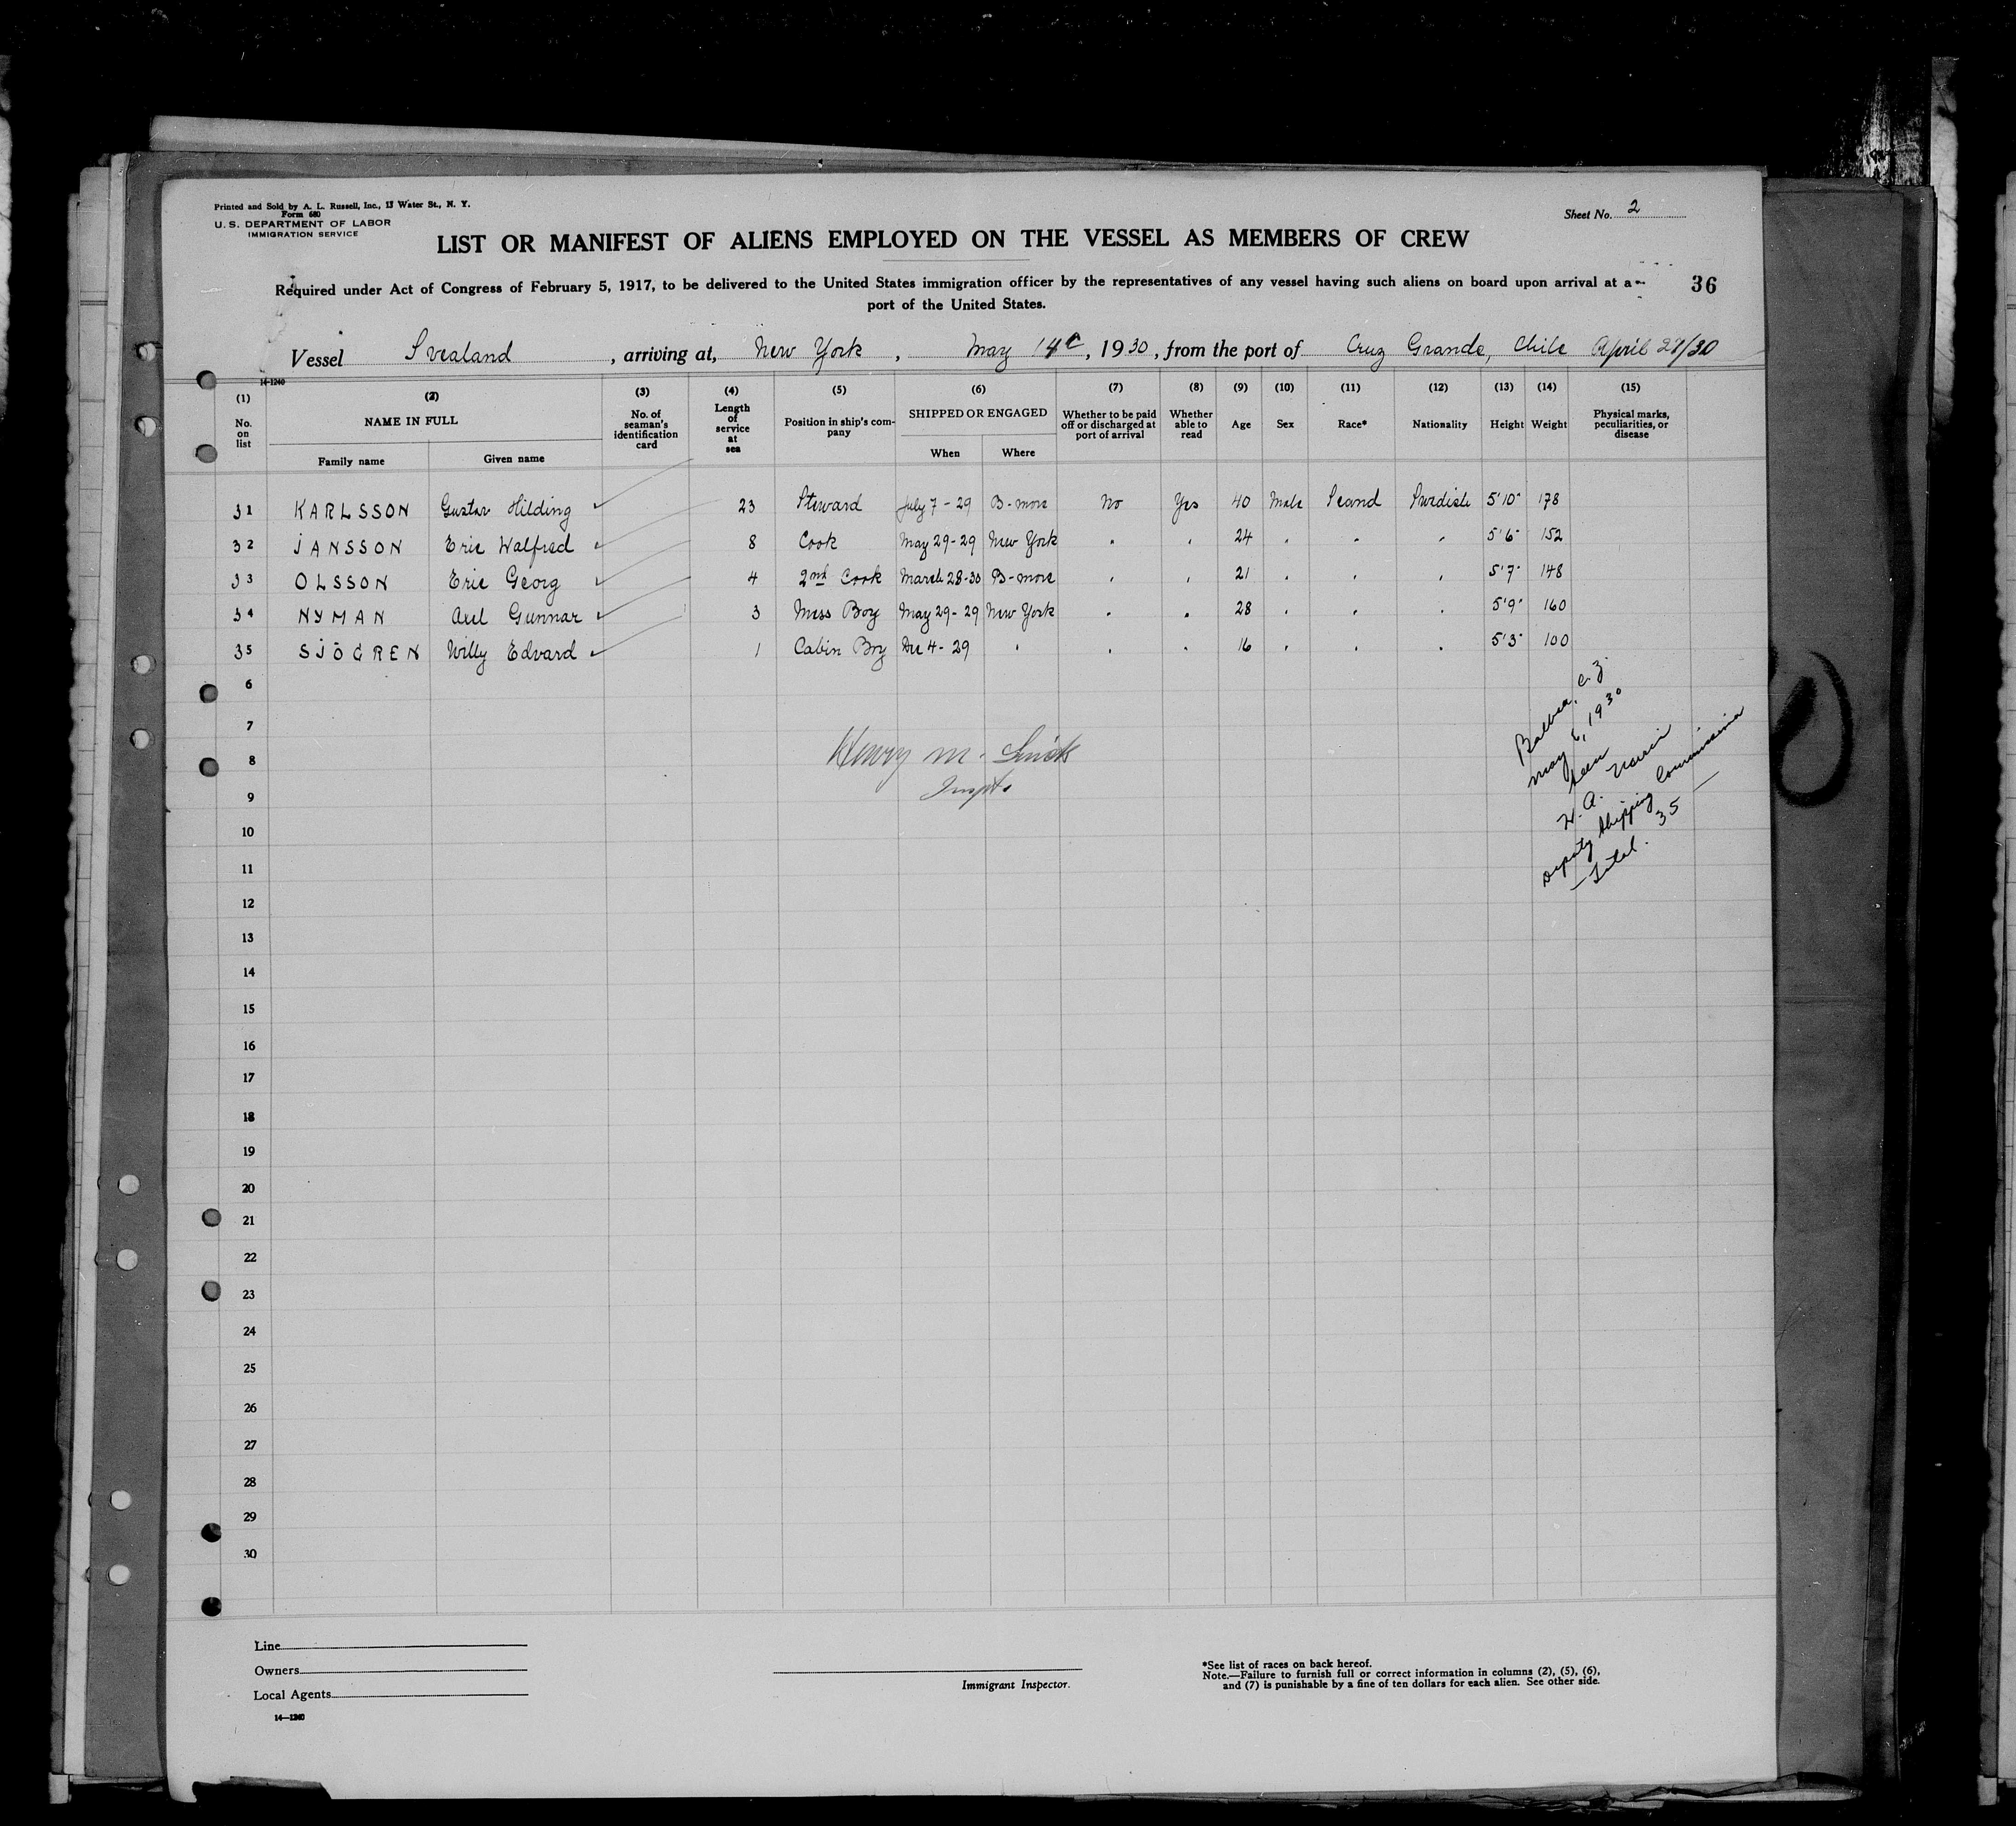 Printed and Sold by A. L. Russell, Inc., 13 Water St., N. Y.
Form 680
U. S. DEPARTMENT OF LABOR
IMMIGRATION SERVICE
Sheet No. 2
LIST OR MANIFEST OF ALIENS EMPLOYED ON THE VESSEL AS MEMBERS OF CREW
36
Required under Act of Congress of February 5, 1917, to be delivered to the United States immigration officer by the representatives of any vessel having such aliens on board upon arrival at a
port of the United States.
Vessel Svealand, arriving at, New York, May 14, 1930, from the port of Cruz Grande, Chile April /30
14-1240
(1) No. on list
(2) NAME IN FULL
Family name Given name
(3) No. of seaman's identification card
(4) Length of service at sea
(5) Position in ship's company
(6) SHIPPED OR ENGAGED
When Where
(7) Whether to be paid off or discharged at port of arrival
(8) Whether able to read
(9) Age
(10) Sex
(11) Race*
(12) Nationality
(13) Height
(14) Weight
(15) Physical marks, peculiarities, or disease
31 KARLSSON Gustav Hilding ✓ 23 Steward July 7-29 B-more No Yes 40 Male Scand Swedish 5'10" 178
32 JANSSON Eric Walfred ✓ 8 Cook May 29-29 New York " " 24 " " " 5'6" 152
33 OLSSON Eric Georg ✓ 4 2nd Cook March 28-30 B-more " " 21 " " " 5'7" 148
34 NYMAN Axel Gunnar ✓ 3 Mess Boy May 29-29 New York " " 28 " " " 5'9" 160
35 SJÖGREN Willy Edvard ✓ 1 Cabin Boy Dec 4-29 " " " 16 " " " 5'3" 100
6
7
8
9
10
11
12
13
14
15
16
17
18
19
20
21
22
23
24
25
26
27
28
29
30
Henry M.
Inspt.
Balboa, C. Z.
May 6, 1930
Seen
Deputy Shipping Commissioner
Total. 35
Line
Owners
Local Agents
14—1240
Immigrant Inspector.
*See list of races on back hereof.
Note.—Failure to furnish full or correct information in columns (2), (5), (6),
and (7) is punishable by a fine of ten dollars for each alien. See other side.